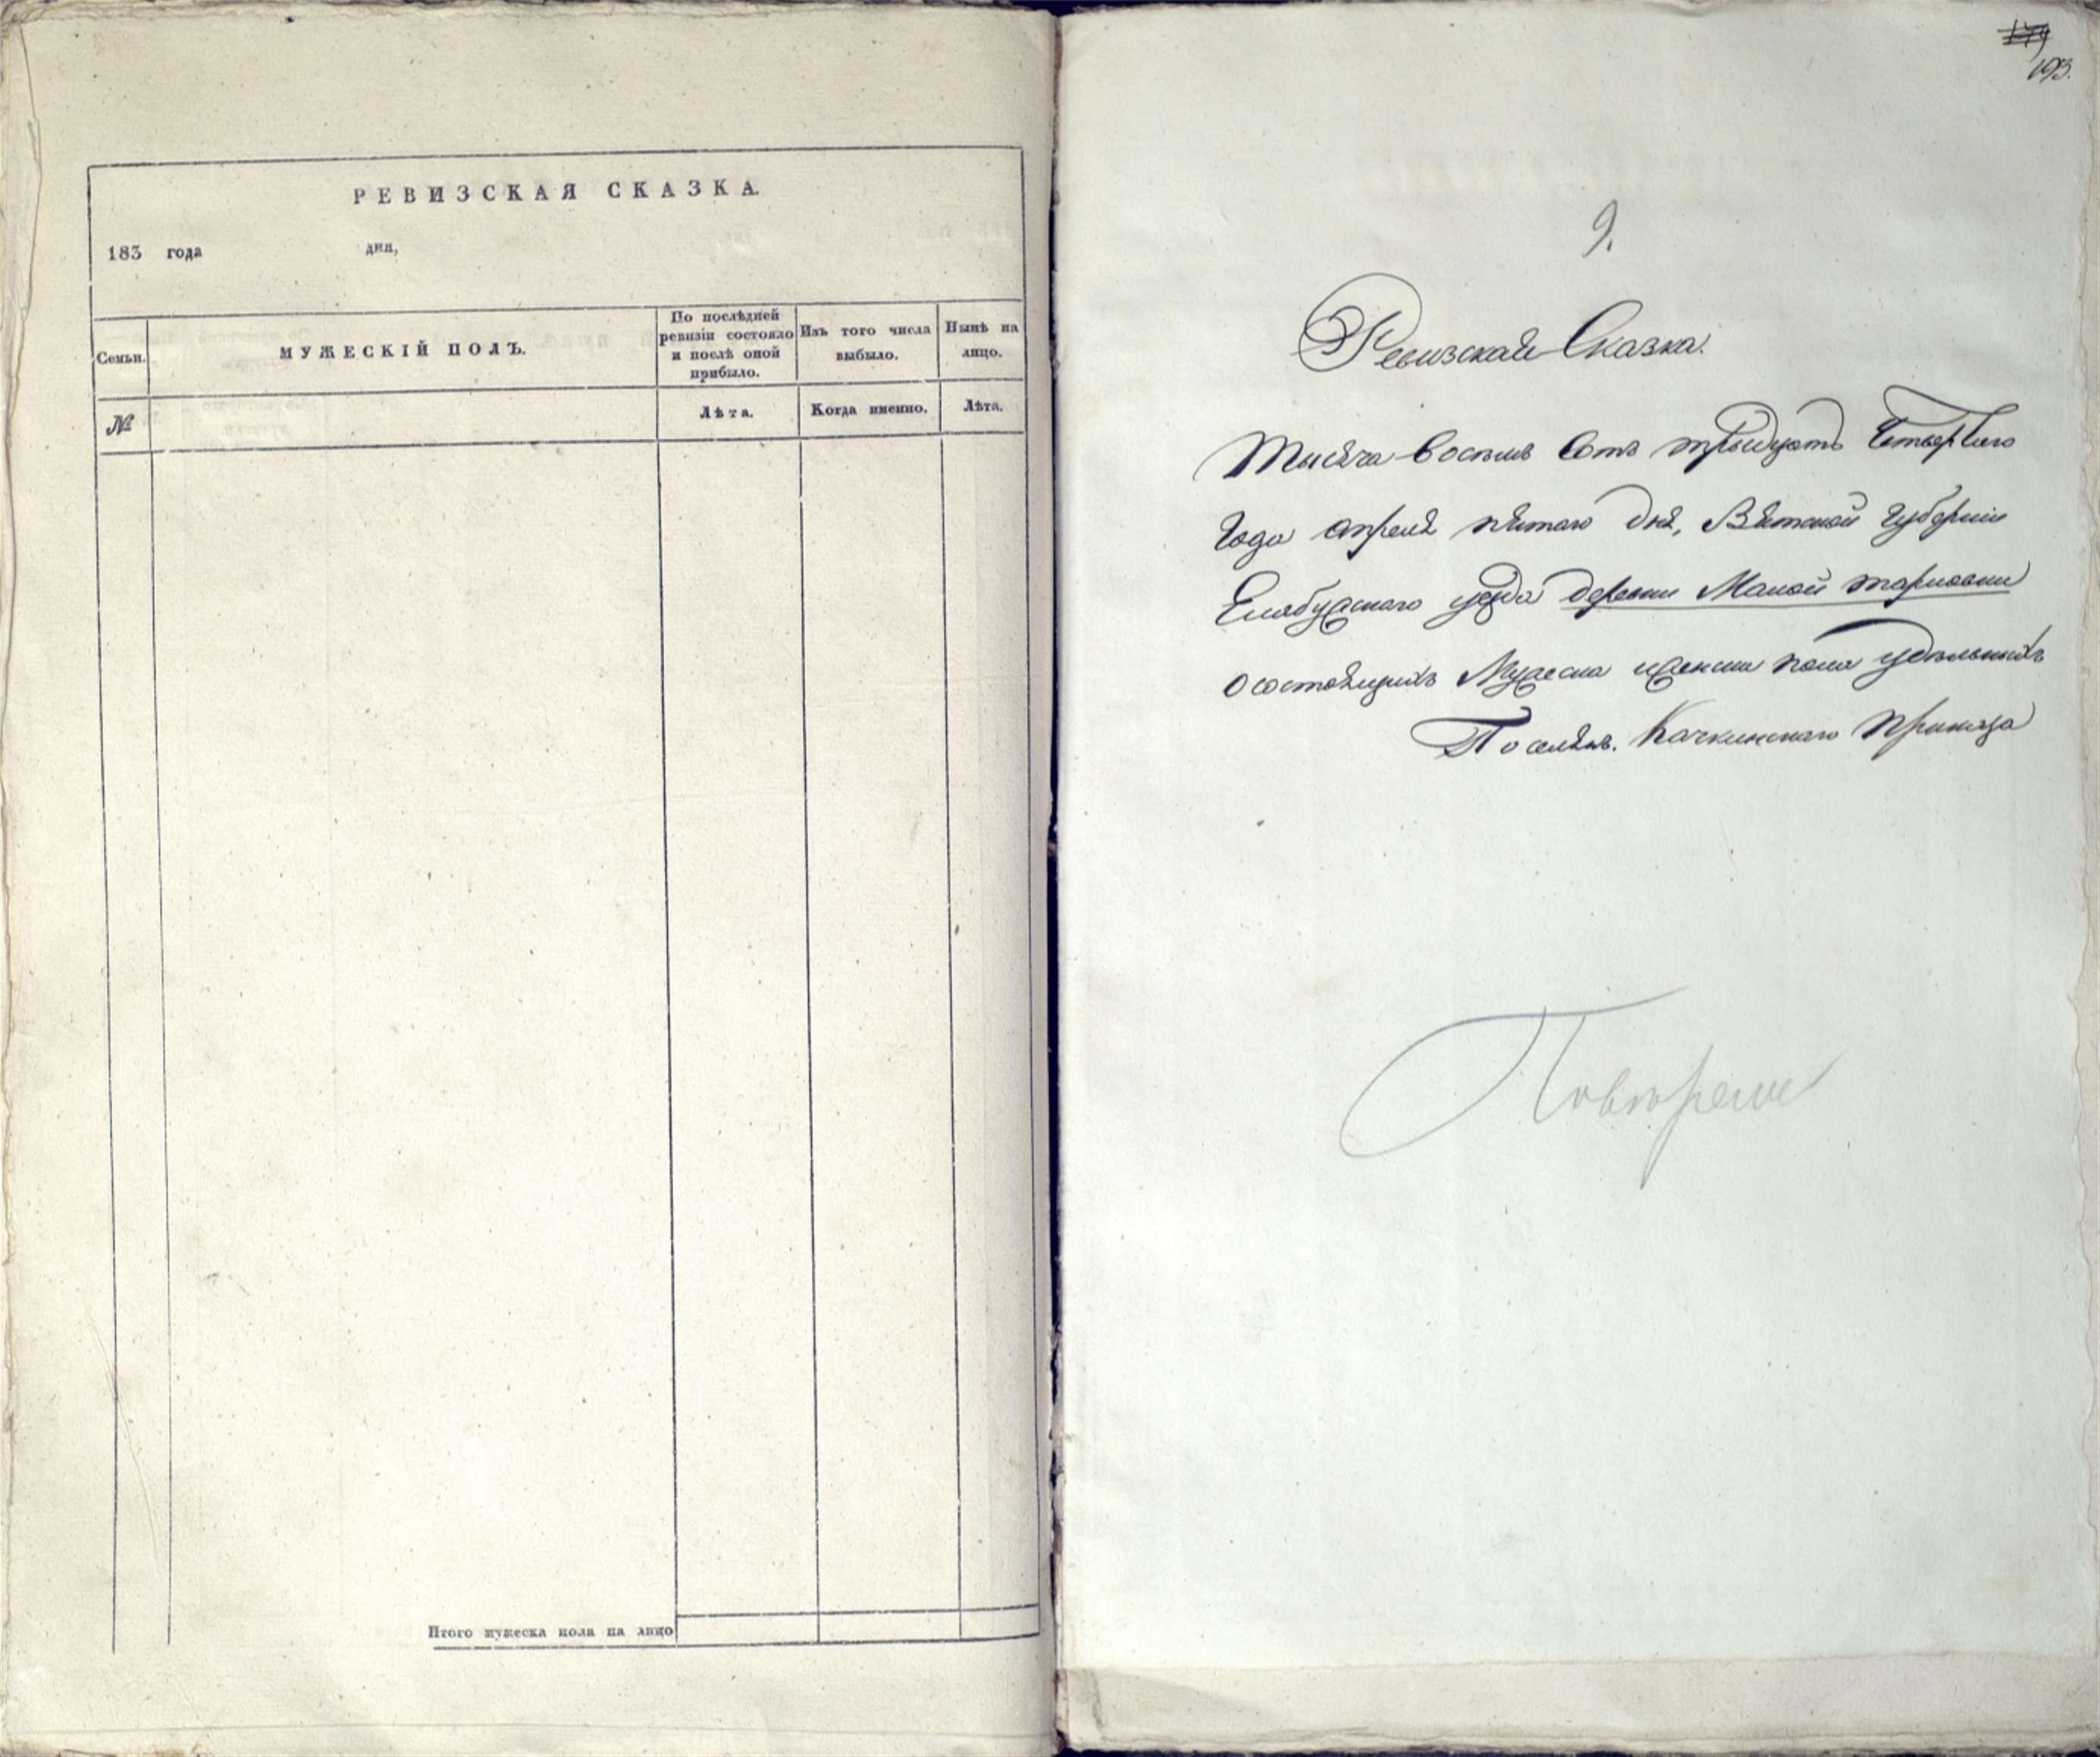 РЕВИЗСКАЯ СКАЗКА.
183 года дня,
Семьи.
МУЖЕСКІЙ ПОЛЪ.
По послѣдней ревизіи состояло и послѣ оной прибыло.
Изъ того числа выбыло.
Нынѣ на лицо.
№
Лѣта.
Когда именно.
Лѣта.
Итого мужеска пола на лицо
179
193.
9.
Ревизская Сказка.
Тысяча восемь Сотъ тридцать Четвертаго
Года апреля пятаго дня, Вятской Губерніи
Елабужскаго уезда деревни Малой
о состоящихъ Мужеска и женска пола удѣльныхъ
Поселянъ. Качкинскаго приказа